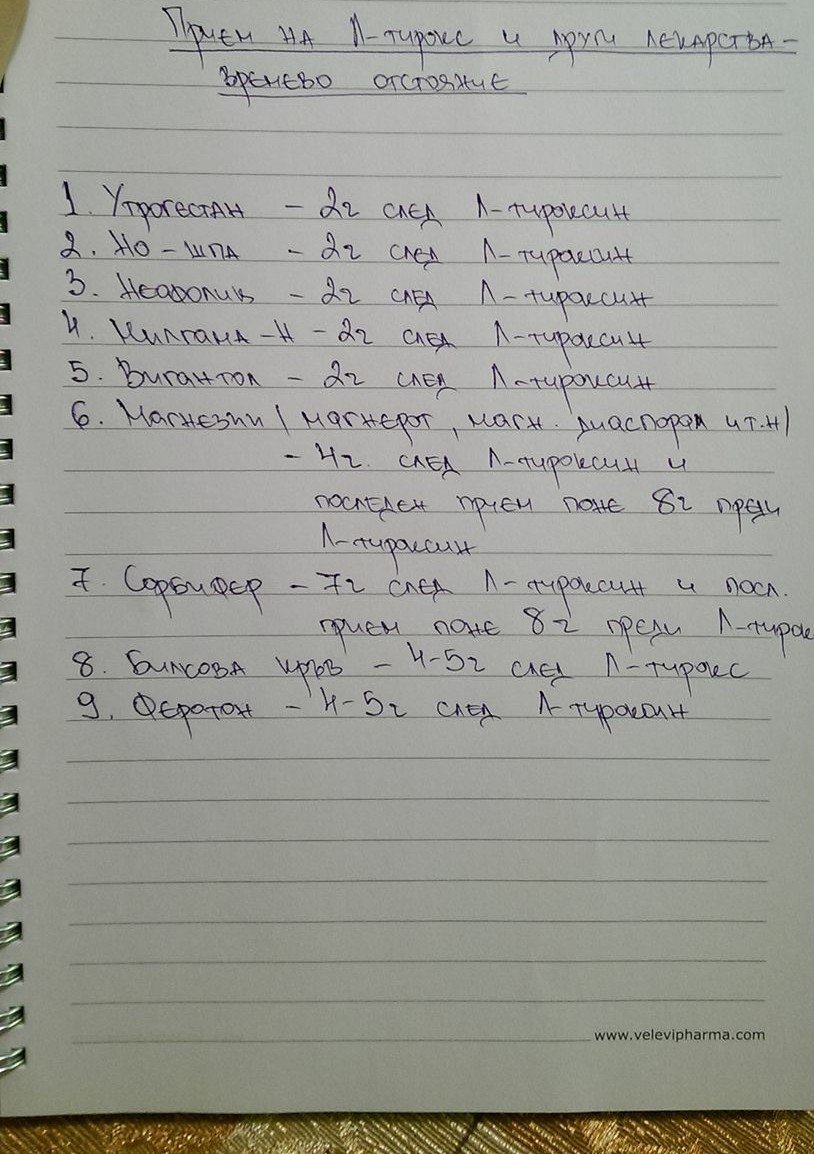 Прием на Л-тирокс и други лекарства -
времево отстояние
1. Утрогестан - 2ч след Л-тироксин
2. Но-шпа - 2ч след Л-тироксин
3. Неофолик - 2ч след Л-тироксин
4. Милгама-Н - 2ч след Л-тироксин
5. Вигантол - 2ч след Л-тироксин
6. Магнезии (магнерот, магн. диаспорал и т.н)
- 4ч. след Л-тироксин и
последен прием поне 8ч преди
Л-тироксин
7. Сорбифер - 7ч след Л-тироксин и посл.
прием поне 8ч преди Л-тирок
8. Билкова кръв - 4-5ч след Л-тирокс
9. Феротон - 4-5ч след Л-тироксин
www.velevipharma.com